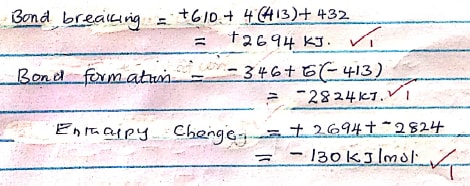 Bond breaking = +610 + 4(413) + 432
= +2694 KJ. ✓1
Bond formation = -346 + 6(-413)
= -2824 KJ. ✓1
Enthalpy Change = + 2694 + -2824
= -130 KJ/mol. ✓1